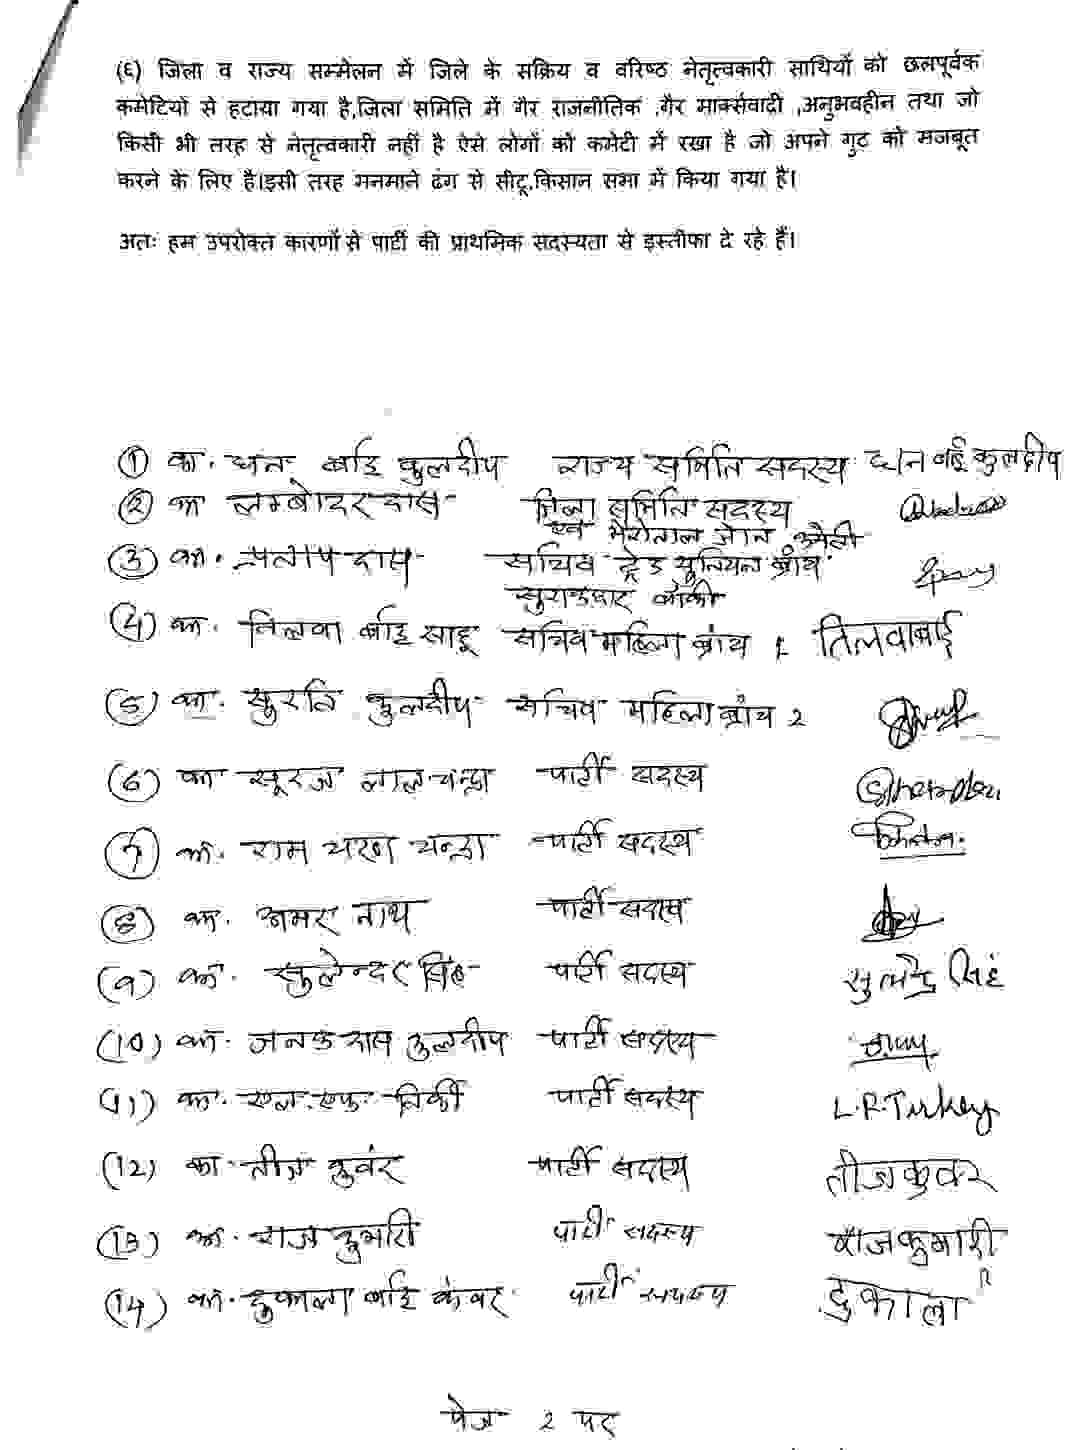 (६) जिला व राज्य सम्मेलन में जिले के सक्रिय व वरिष्ठ नेतृत्वकारी साथियों को छलपूर्वक
कमेटियों से हटाया गया है,जिला समिति में गैर राजनीतिक ,गैर मार्क्सवादी ,अनुभवहीन तथा जो
किसी भी तरह से नेतृत्वकारी नहीं है ऐसे लोगों को कमेटी में रखा है जो अपने गुट को मजबूत
करने के लिए है।इसी तरह मनमाने ढंग से सीटू,किसान सभा में किया गया है।
अतः हम उपरोक्त कारणों से पार्टी की प्राथमिक सदस्यता से इस्तीफा दे रहे हैं।
(1) का. धन बाई कुलदीप राज्य समिति सदस्य धन बाई कुलदीप
(2) का लम्बोदर दास जिला समिति सदस्य
(3) का. प्रताप दास सचिव ट्रेड यूनियन ब्रांच
सुराकछार बांकी
(4) का. तिलवा बाई साहू सचिव महिला ब्रांच 1 तिलवाबाई
(5) का. सुरति कुलदीप सचिव महिला ब्रांच 2
(6) का सूरज लाल चन्द्रा पार्टी सदस्य
(7) का. राम चरण चन्द्रा पार्टी सदस्य
(8) का. अमर नाथ पार्टी सदस्य
(9) का. सुलेन्दर सिंह पार्टी सदस्य सुलेन्द्र सिंह
(10) का. जनक दास कुलदीप पार्टी सदस्य
(11) का. एल.एफ. तिर्की पार्टी सदस्य L.R.Tirkey
(12) का तीज कुवंर पार्टी सदस्य तीजकुवर
(13) का. राज कुमारी पार्टी सदस्य राजकुमारी
(14) का. दुकाला बाई कंवर पार्टी सदस्य दुकाला
पेज 2 पर